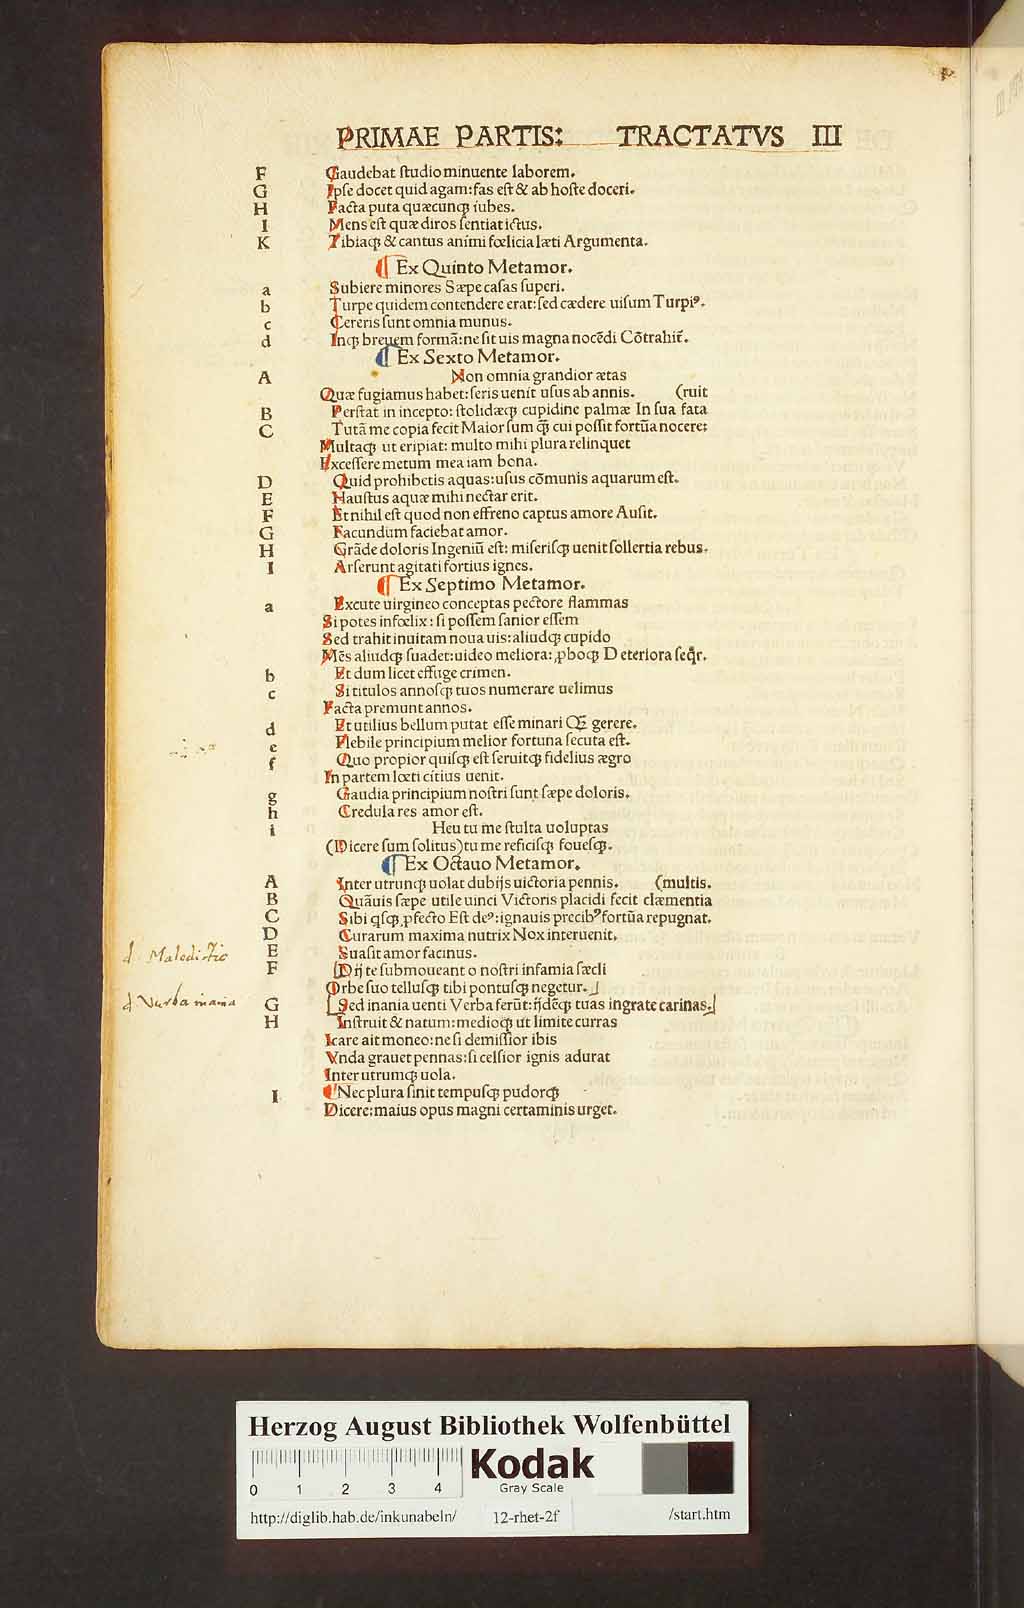 PRIMAE PARTIS: TRACTATVS III
F Gaudebat ſtudio minuente laborem.
G Ipſe docet quid agam: fas eſt & ab hoſte doceri.
H Facta puta quæcunqꝫ iubes.
I Mens eſt quæ diros ſentiat ictus.
K Tibiaqꝫ & cantus animi fœlicia læti Argumenta.
¶ Ex Quinto Metamor.
a Subiere minores Sæpe caſas ſuperi.
b Turpe quidem contendere erat: ſed cædere uiſum Turpiꝰ.
c Cereris ſunt omnia munus.
d Inqꝫ breuem formã: ne ſit uis magna nocẽdi Cõtrahit̃.
¶ Ex Sexto Metamor.
A Non omnia grandior ætas
Quæ fugiamus habet: ſeris uenit uſus ab annis. (ruit
B Perſtat in incepto: ſtolidæqꝫ cupidine palmæ In ſua fata
C Tutã me copia fecit Maior ſum q̃ cui poſſit fortũa nocere:
Multaqꝫ ut eripiat: multo mihi plura relinquet
Exceſſere metum mea iam bona.
D Quid prohibetis aquas: uſus cõmunis aquarum eſt.
E Hauſtus aquæ mihi nectar erit.
F Et nihil eſt quod non effreno captus amore Auſit.
G Facundum faciebat amor.
H Grãde doloris Ingeniũ eſt: miſeriſqꝫ uenit ſollertia rebus.
I Arſerunt agitati fortius ignes.
¶ Ex Septimo Metamor.
a Excute uirgineo conceptas pectore flammas
Si potes infœlix: ſi poſſem ſanior eſſem
Sed trahit inuitam noua uis: aliudqꝫ cupido
Mẽs aliudqꝫ ſuadet: uideo meliora: ꝓboqꝫ Deteriora ſeqr.
b Et dum licet effuge crimen.
c Si titulos annoſqꝫ tuos numerare uelimus
Facta premunt annos.
d Et utilius bellum putat eſſe minari Qꝫ gerere.
e Flebile principium melior fortuna ſecuta eſt.
f Quo propior quiſqꝫ eſt ſeruitqꝫ fidelius ægro
In partem lœti citius uenit.
g Gaudia principium noſtri ſunt ſæpe doloris.
h Credula res amor eſt.
i Heu tu me ſtulta uoluptas
(Dicere ſum ſolitus) tu me reficiſqꝫ foueſqꝫ.
¶ Ex Octauo Metamor.
A Inter utrunqꝫ uolat dubijs uictoria pennis. (multis.
B Quãuis ſæpe utile uinci Victoris placidi fecit clæmentia
C Sibi qſqꝫ ꝓfecto Eſt deꝰ: ignauis precibꝰ fortũa repugnat.
D Curarum maxima nutrix Nox interuenit.
E Suaſit amor facinus.
F Dij te ſubmoueant o noſtri infamia ſæcli
Orbe ſuo telluſqꝫ tibi pontuſqꝫ negetur.
G Sed inania uenti Verba ferũt: ijdẽqꝫ tuas ingrate carinas.
H Inſtruit & natum: medioqꝫ ut limite curras
Icare ait moneo: ne ſi demiſſior ibis
Vnda grauet pennas: ſi celſior ignis adurat
Inter utrumqꝫ uola.
I ¶ Nec plura ſinit tempuſqꝫ pudorqꝫ
Dicere: maius opus magni certaminis urget.
Herzog August Bibliothek Wolfenbüttel
0 1 2 3 4
Kodak
Gray Scale
http://diglib.hab.de/inkunabeln/ 12-rhet-2f /start.htm